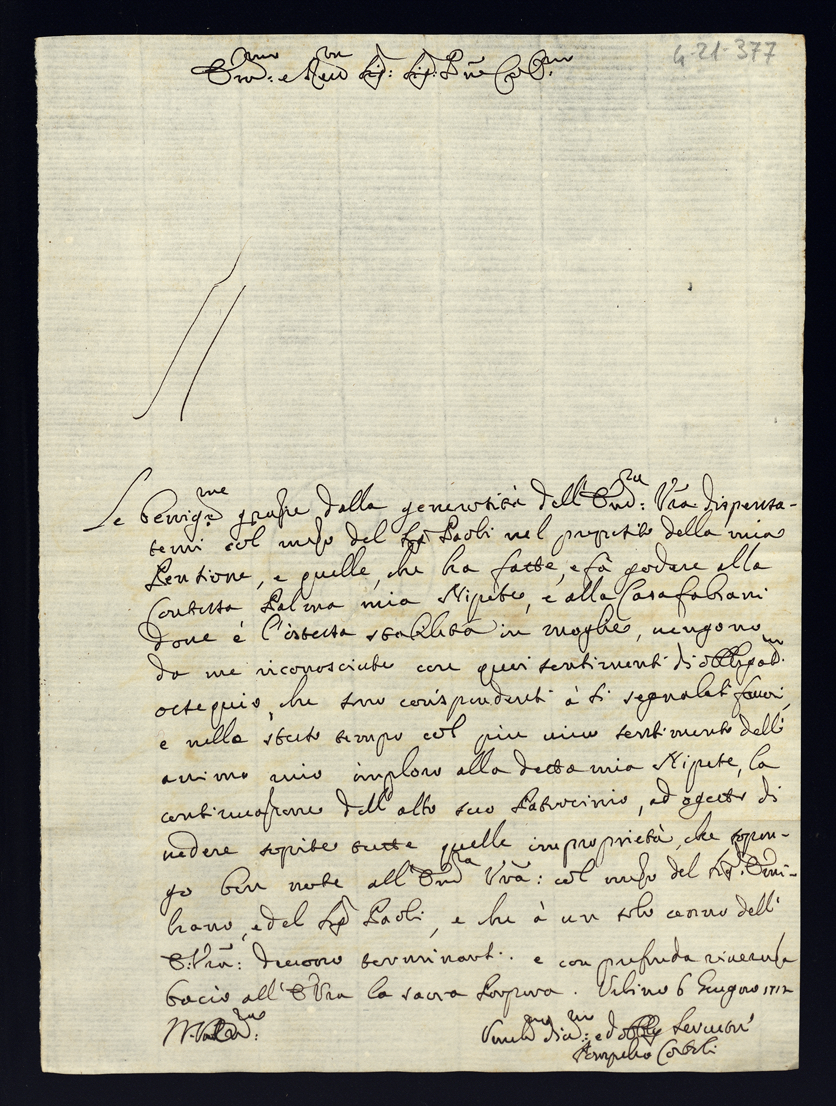 4-21-377
Em.mo e Rev.mo Sig. Sig. P.ne Col.mo
Le benig.me grazie dalla generosità dell'Em.za V.ra dispensa-
temi col mezo del Sig. Paoli nel proposito della mia
Pensione, e quelle, che ha fatte, e fà godere alla
Contessa Palma mia Nipote, e alla Casa Fabani
dove è l'istessa stabilita in moglie, vengono
da me riconosciute con quei sentimenti di obligat.mo
ossequio, che sono corispondenti à si segnalati favori,
e nello stesso tempo col più vivo sentimento dell'
animo mio imploro alla detta mia Nipote, la
continuazione dell'alto suo Patrocinio, ad ogetto di
vedere sopite tutte quelle improprietà, che sopon-
go ben note all'Em.za V.ra: col mezo del Sig. Emi-
liano, e del Sig. Paoli, e che à un solo cenno dell'
E. V.ra: devono terminarsi. e con profonda riverenza
bacio all'E. V.ra la sacra Porpora. Urbino 6 Giugno 1712
Um.mo Div.mo: ed obblig. Servitore
Pompilio Corboli